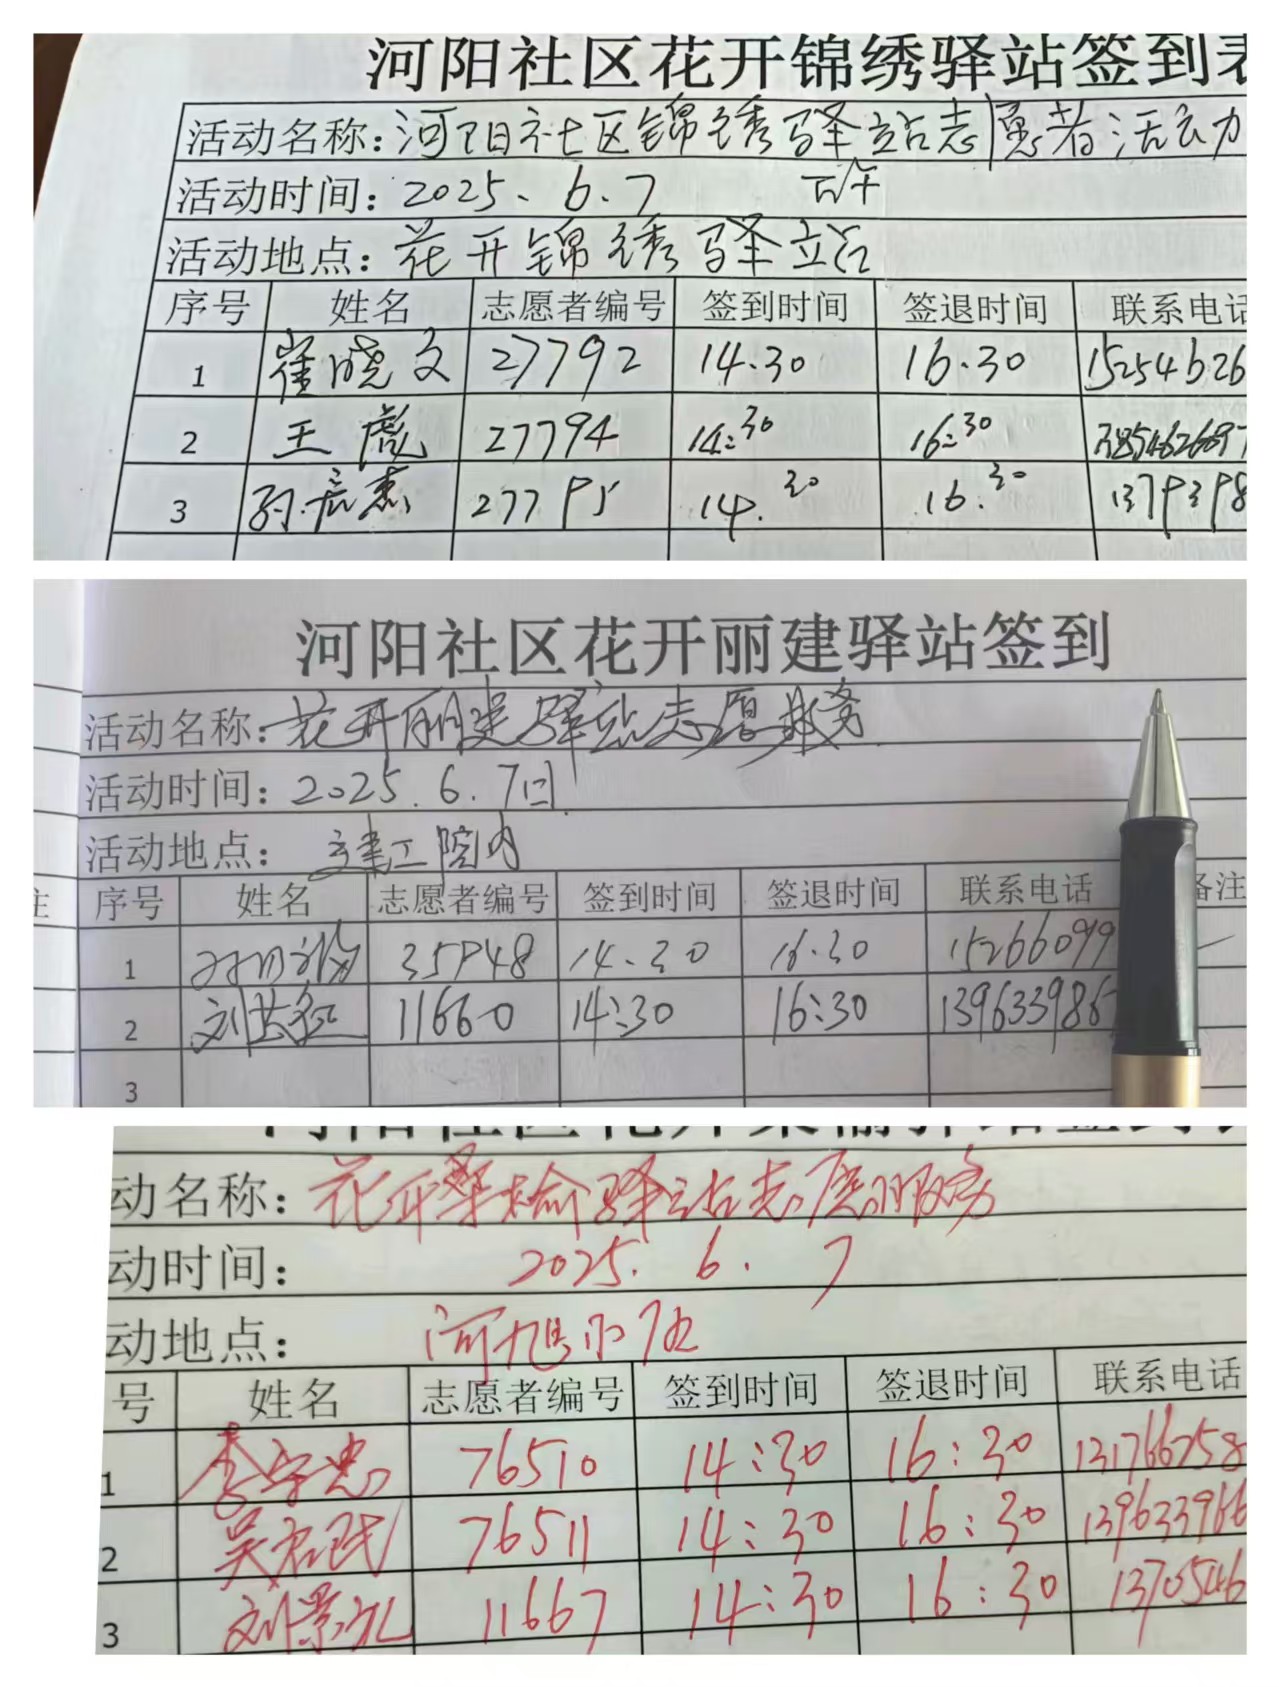 河阳社区花开锦绣驿站签到表
活动名称：河阳社区锦绣驿站志愿者活动
活动时间：2025、6.7 下午
活动地点：花开锦绣驿站
序号 姓名 志愿者编号 签到时间 签退时间 联系电话
1 崔晓文 27792 14:30 16:30 15254626
2 王彪 27794 14:30 16:30
3 27795 14:30 16:30 1379398
河阳社区花开丽建驿站签到
活动名称：花开丽建驿站志愿服务
活动时间：2025.6.7日
活动地点：建工院内
注 序号 姓名 志愿者编号 签到时间 签退时间 联系电话 备注
1 35948 14:30 16:30 15266099
2 11660 14:30 16:30 139633986
3
河阳社区花开桑榆驿站签到表
动名称：花开桑榆驿站志愿服务
动时间：2025. 6. 7
动地点：河旭小区
号 姓名 志愿者编号 签到时间 签退时间 联系电话
1 李守忠 76510 14:30 16:30 131766758
2 76511 14:30 16:30 139633966
3 刘景元 11667 14:30 16:30 1370546